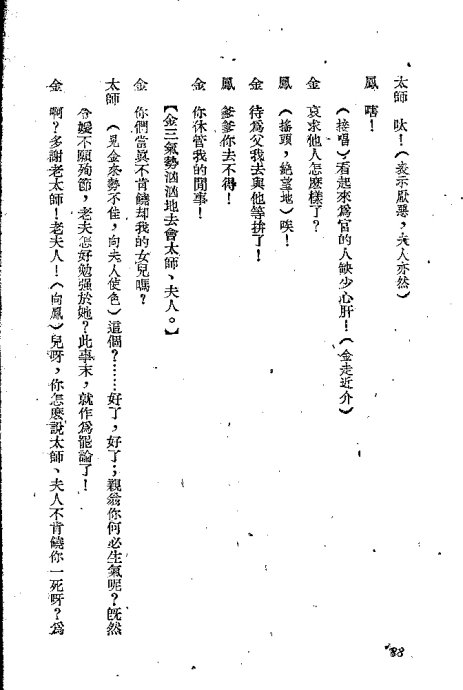 太師　呔！（表示厭惡，夫人亦然）
鳳　嗐！
（接唱）看起來爲官的人缺少心肝！（金走近介）
金　哀求他人怎麼樣了？
鳳　（搖頭，絕望地）唉！
金　待爲父我去與他等拚了！
鳳　爹爹你去不得！
金　你休管我的閒事！
【金三氣勢汹汹地去會太師、夫人。】
金　你們當眞不肯饒却我的女兒嗎？
太師　（見金來勢不佳，向夫人使色）這個？……好了，好了；親翁你何必生氣呢？旣然
令媛不願殉節，老夫怎好勉强於她？此事末，就作爲罷論了！
金　啊？多謝老太師！老夫人！（向鳳）兒呀，你怎麽說太師、夫人不肯饒你一死呀？爲
88